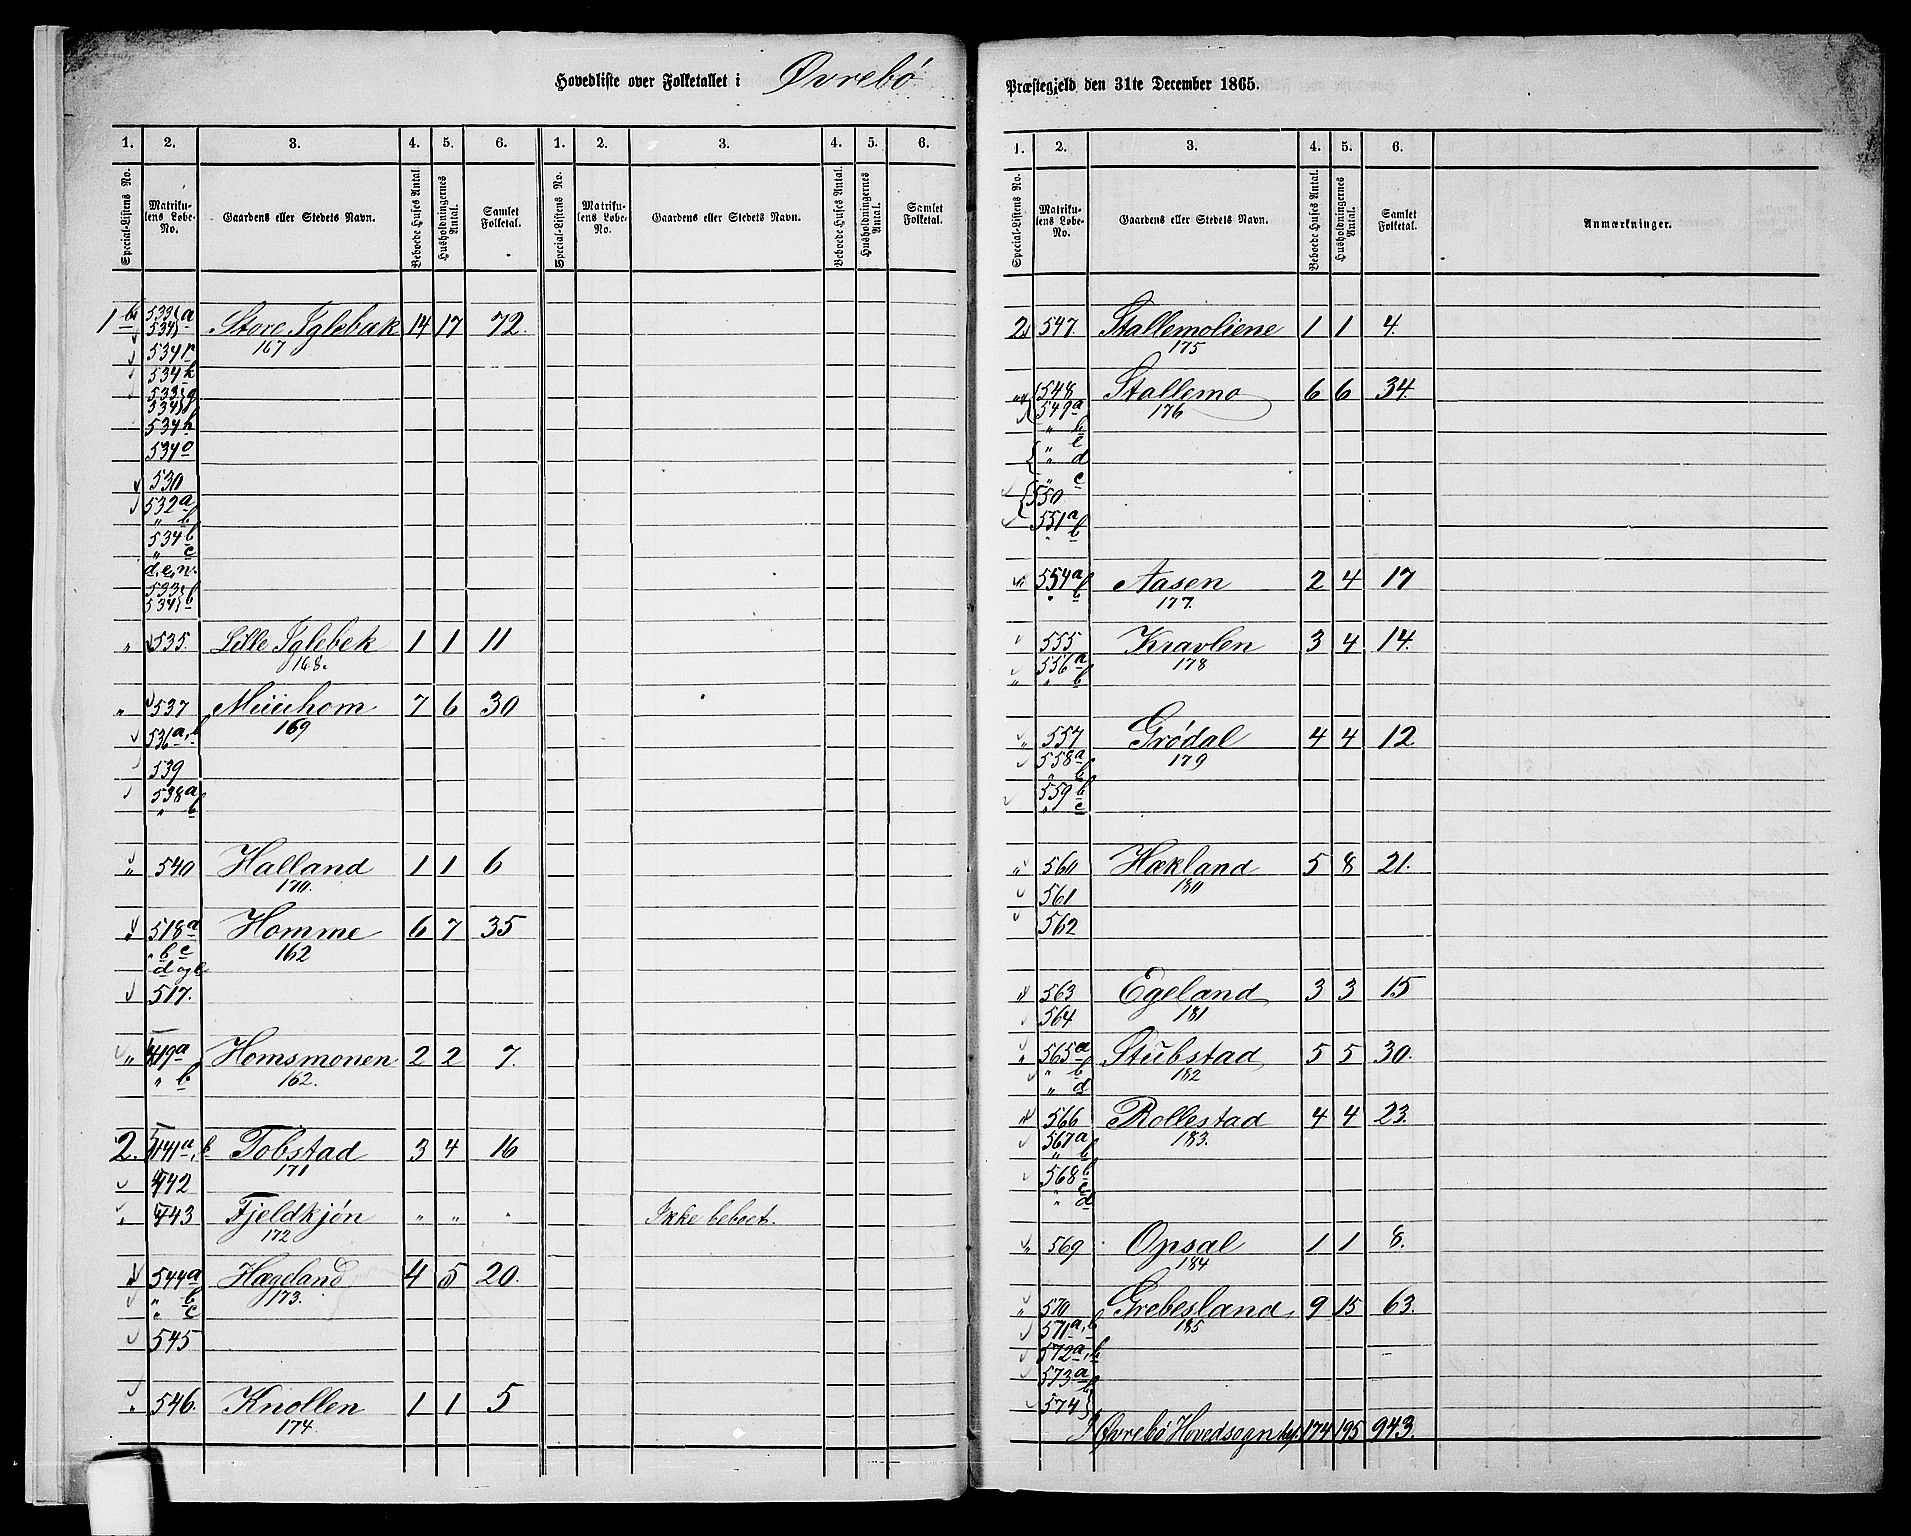 Hovedliste over Folketallet i Øvrebö
1. 2. 3. 4. 5. 6. 1. 2. 3. 4. 5. 6.
Special-Listens No. Matrikulens Løbe-No. Gaardens eller Stedets Navn. Beboede Huses Antal. Husholdningernes Antal. Samlet Folketal. Special-Listens No. Matrikulens Løbe-No. Gaardens eller Stedets Navn. Beboede Huses Antal. Husholdningernes Antal. Samlet Folketal.
1 b 533 534 a Store Iglebæk 14 17 72.
167
534 r
534 k
533 534 g
534 h
534 o
530
532 a
" b
534 b
" c
d, e, n.
533 534 b
" 535. Lille Iglebek 1 1 11
168.
" 537 Muuhom 7 6 30
536 a, b 169
539
538 a
" b
" 540 Halland 1 1 6
170.
" 518 a Homme 6 7 35
" b c 162
d og e
517.
" 519 a Homsmonen 2 2 7.
" b 162.
2. 541 a, b Tobstad 3 4 16
171
542
" 543 Fjeldkjøn " " " Ikke beboet.
172
" 544 a Hægeland 4 5 20.
" b 173.
" c
545
" 546. Knollen 1 1 5
174.
Præstegjeld den 31te December 1865.
1. 2. 3. 4. 5. 6.
Special-Listens No. Matrikulens Løbe-No. Gaardens eller Stedets Navn. Beboede Huses Antal. Husholdningernes Antal. Samlet Folketal. Anmærkninger.
2 547. Stallemoliene 1 1 4.
175
" 548 Stallemo 6 6 34.
549 a 176
" b
" e
" d
" c
550
551 a
" b
" 554 a Aasen 2 4 17
" b 177.
555 Kravlen 3 4 14.
556 a 178
" b
" 557 Grödal 4 4 12
558 a 179
" b
559 b
" c
" 560 Hækland 5 8 21.
561 180
562
" 563 Egeland 3 3 15
564 181
" 565 a Stubstad 5 5 30.
" b 182
" d
" 566 Rollestad 4 4 23.
567 a 183.
" b
568 b
" c
" d
" 569 Opsal 1 1 8.
184
" 570 Grebesland 9 15 63.
571 a, b 185
572 a, b
573 a
b
574
Øvrebö Hovedsogn 174 195 943.